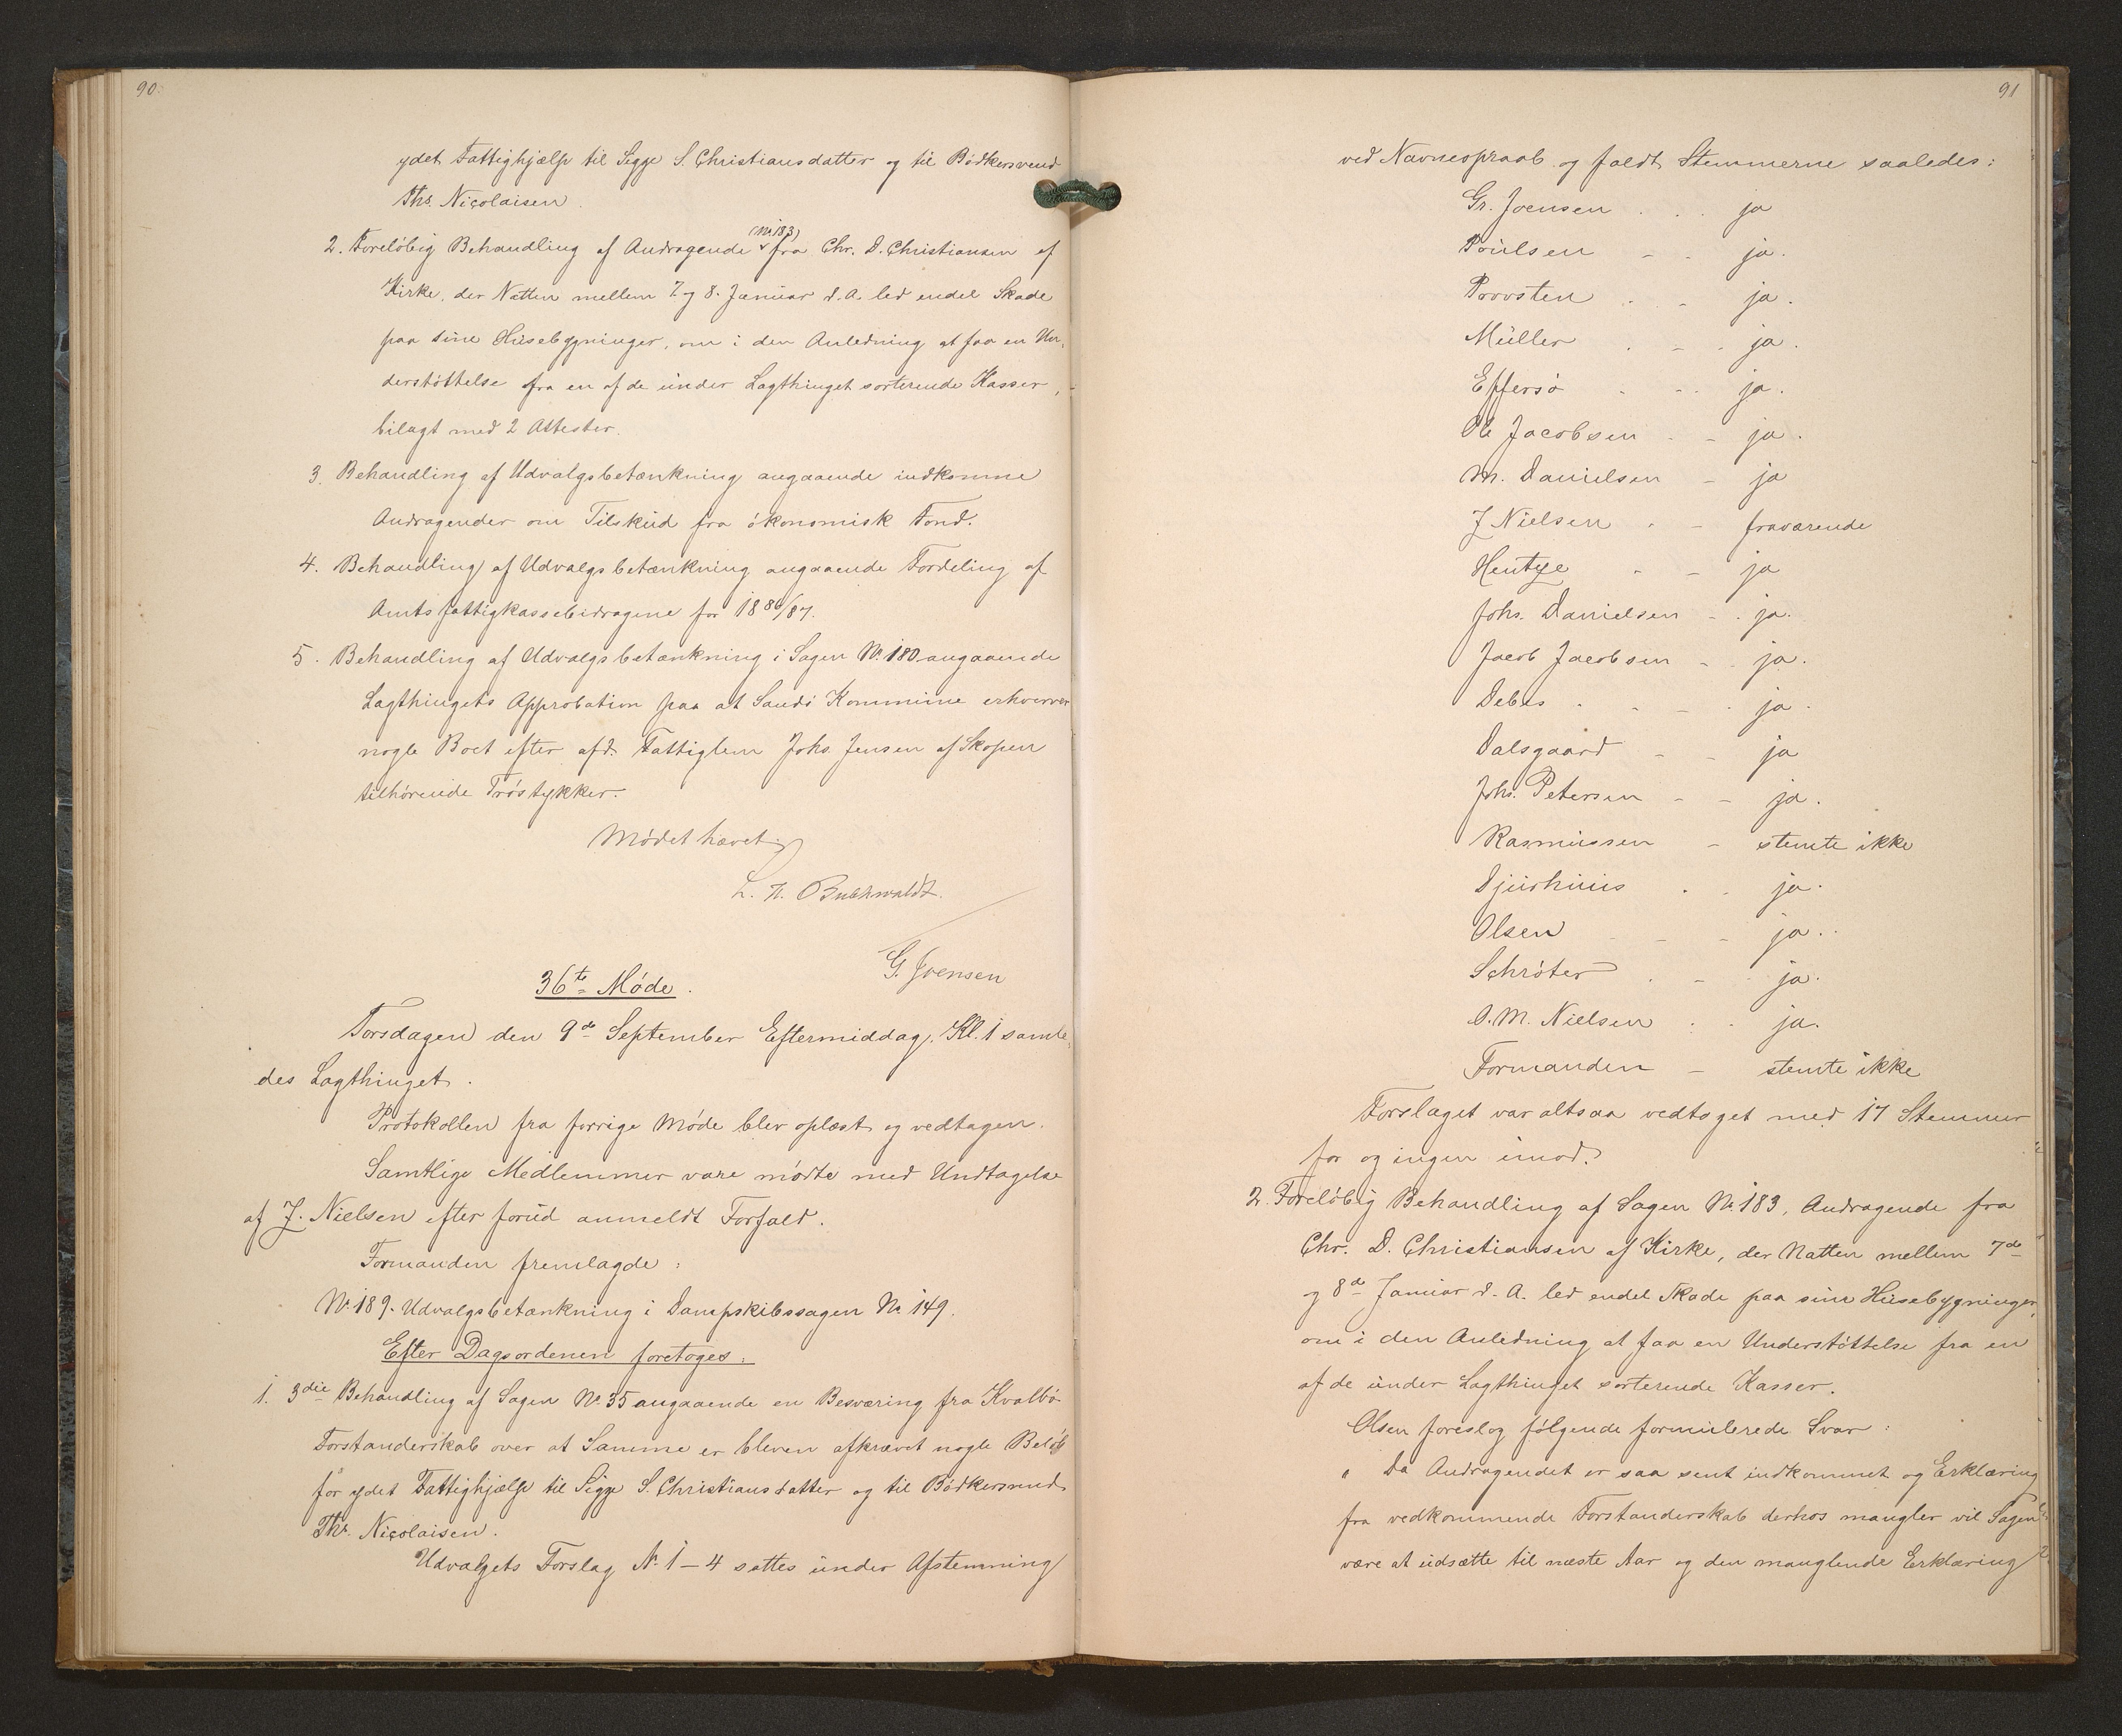 90.
ydet Fattighjælp til Sigge S. Christiansdatter og til Bødkersvend
Ths. Nicolaisen.
2. Foreløbig Behandling af Andragende (No 183) fra Chr. D. Christiansen af
Kirke, der Natten mellem 7. og 8. Januar d. A. led endel Skade
paa sine Husebygninger, om i den Anledning at faa en Un-
derstøttelse fra en af de under Lagthinget sorterende Kasser,
bilagt med 2 Attester.
3. Behandling af Udvalgsbetænkning angaaende indkomne
Andragender om Tilskud fra økonomisk Fond.
4. Behandling af Udvalgsbetænkning angaaende Fordeling af
Amtsfattigkassebidragene for 1886/87.
5. Behandling af Udvalgsbetænkning i Sagen No. 180 angaaende
Lagthingets Approbation paa at Sandø Kommune erhverver
nogle Boet efter afd. Fattiglem Johs. Jensen af Skopen
tilhørende Trøstykker.
Mødet hævet.
L. N. Buchwaldt.
G. Joensen
36te Møde.
Torsdagen den 9de September Eftermiddag. Kl. 1 samle-
des Lagthinget.
Protokollen fra forrige Møde blev oplæst og vedtagen.
Samtlige Medlemmer vare mødte med Undtagelse
af J. Nielsen efter forud anmeldt Forfald.
Formanden fremlagde:
No. 189. Udvalgsbetænkning i Dampskibssagen No. 149.
Efter Dagsordenen foretoges:
1. 3die Behandling af Sagen No. 35 angaaende en Besværing fra Kvalbø
Forstanderskab over at Samme er bleven afkrævet nogle Beløb
for ydet Fattighjælp til Sigge S. Christiansdatter og til Bødkersvend
Ths. Nicolaisen.
Udvalgets Forslag No. 1-4 sattes under Afstemning
91
ved Navneopraab og faldt Stemmerne saaledes:
Gr. Joensen . . . ja
Poulsen - - ja.
Provsten . - ja.
Müller . - . ja.
Effersø . - . ja.
Ole Jacobsen . - ja.
M. Danielsen - ja
J Nielsen . - fraværende
Hentze - - ja
Johs. Danielsen - . ja.
Jacob Jacobsen - . ja.
Debes . . - . ja.
Dalsgaard - - ja
Johs. Petersen - - ja.
Rasmussen - stemte ikke
Djurhuus . . ja.
Olsen - - ja.
Schrøter . - . ja.
O. M. Nielsen . . ja.
Formanden - stemte ikke
Forslaget var altsaa vedtaget med 17 Stemmer
for og ingen imod.
2. Foreløbig Behandling af Sagen No. 183, Andragende fra
Chr. D. Christiansen af Kirke, der Natten mellem 7de
og 8de Januar d. A. led endel Skade paa sine Husebygninger,
om i den Anledning at faa en Understøttelse fra en
af de under Lagthinget sorterende Kasser.
Olsen foreslog følgende formulerede Svar:
" Da Andragendet er saa sent indkommet og Erklæring
fra vedkommende Forstanderskab derhos mangler vil Sagen
være at udsætte til næste Aar og den manglende Erklæring